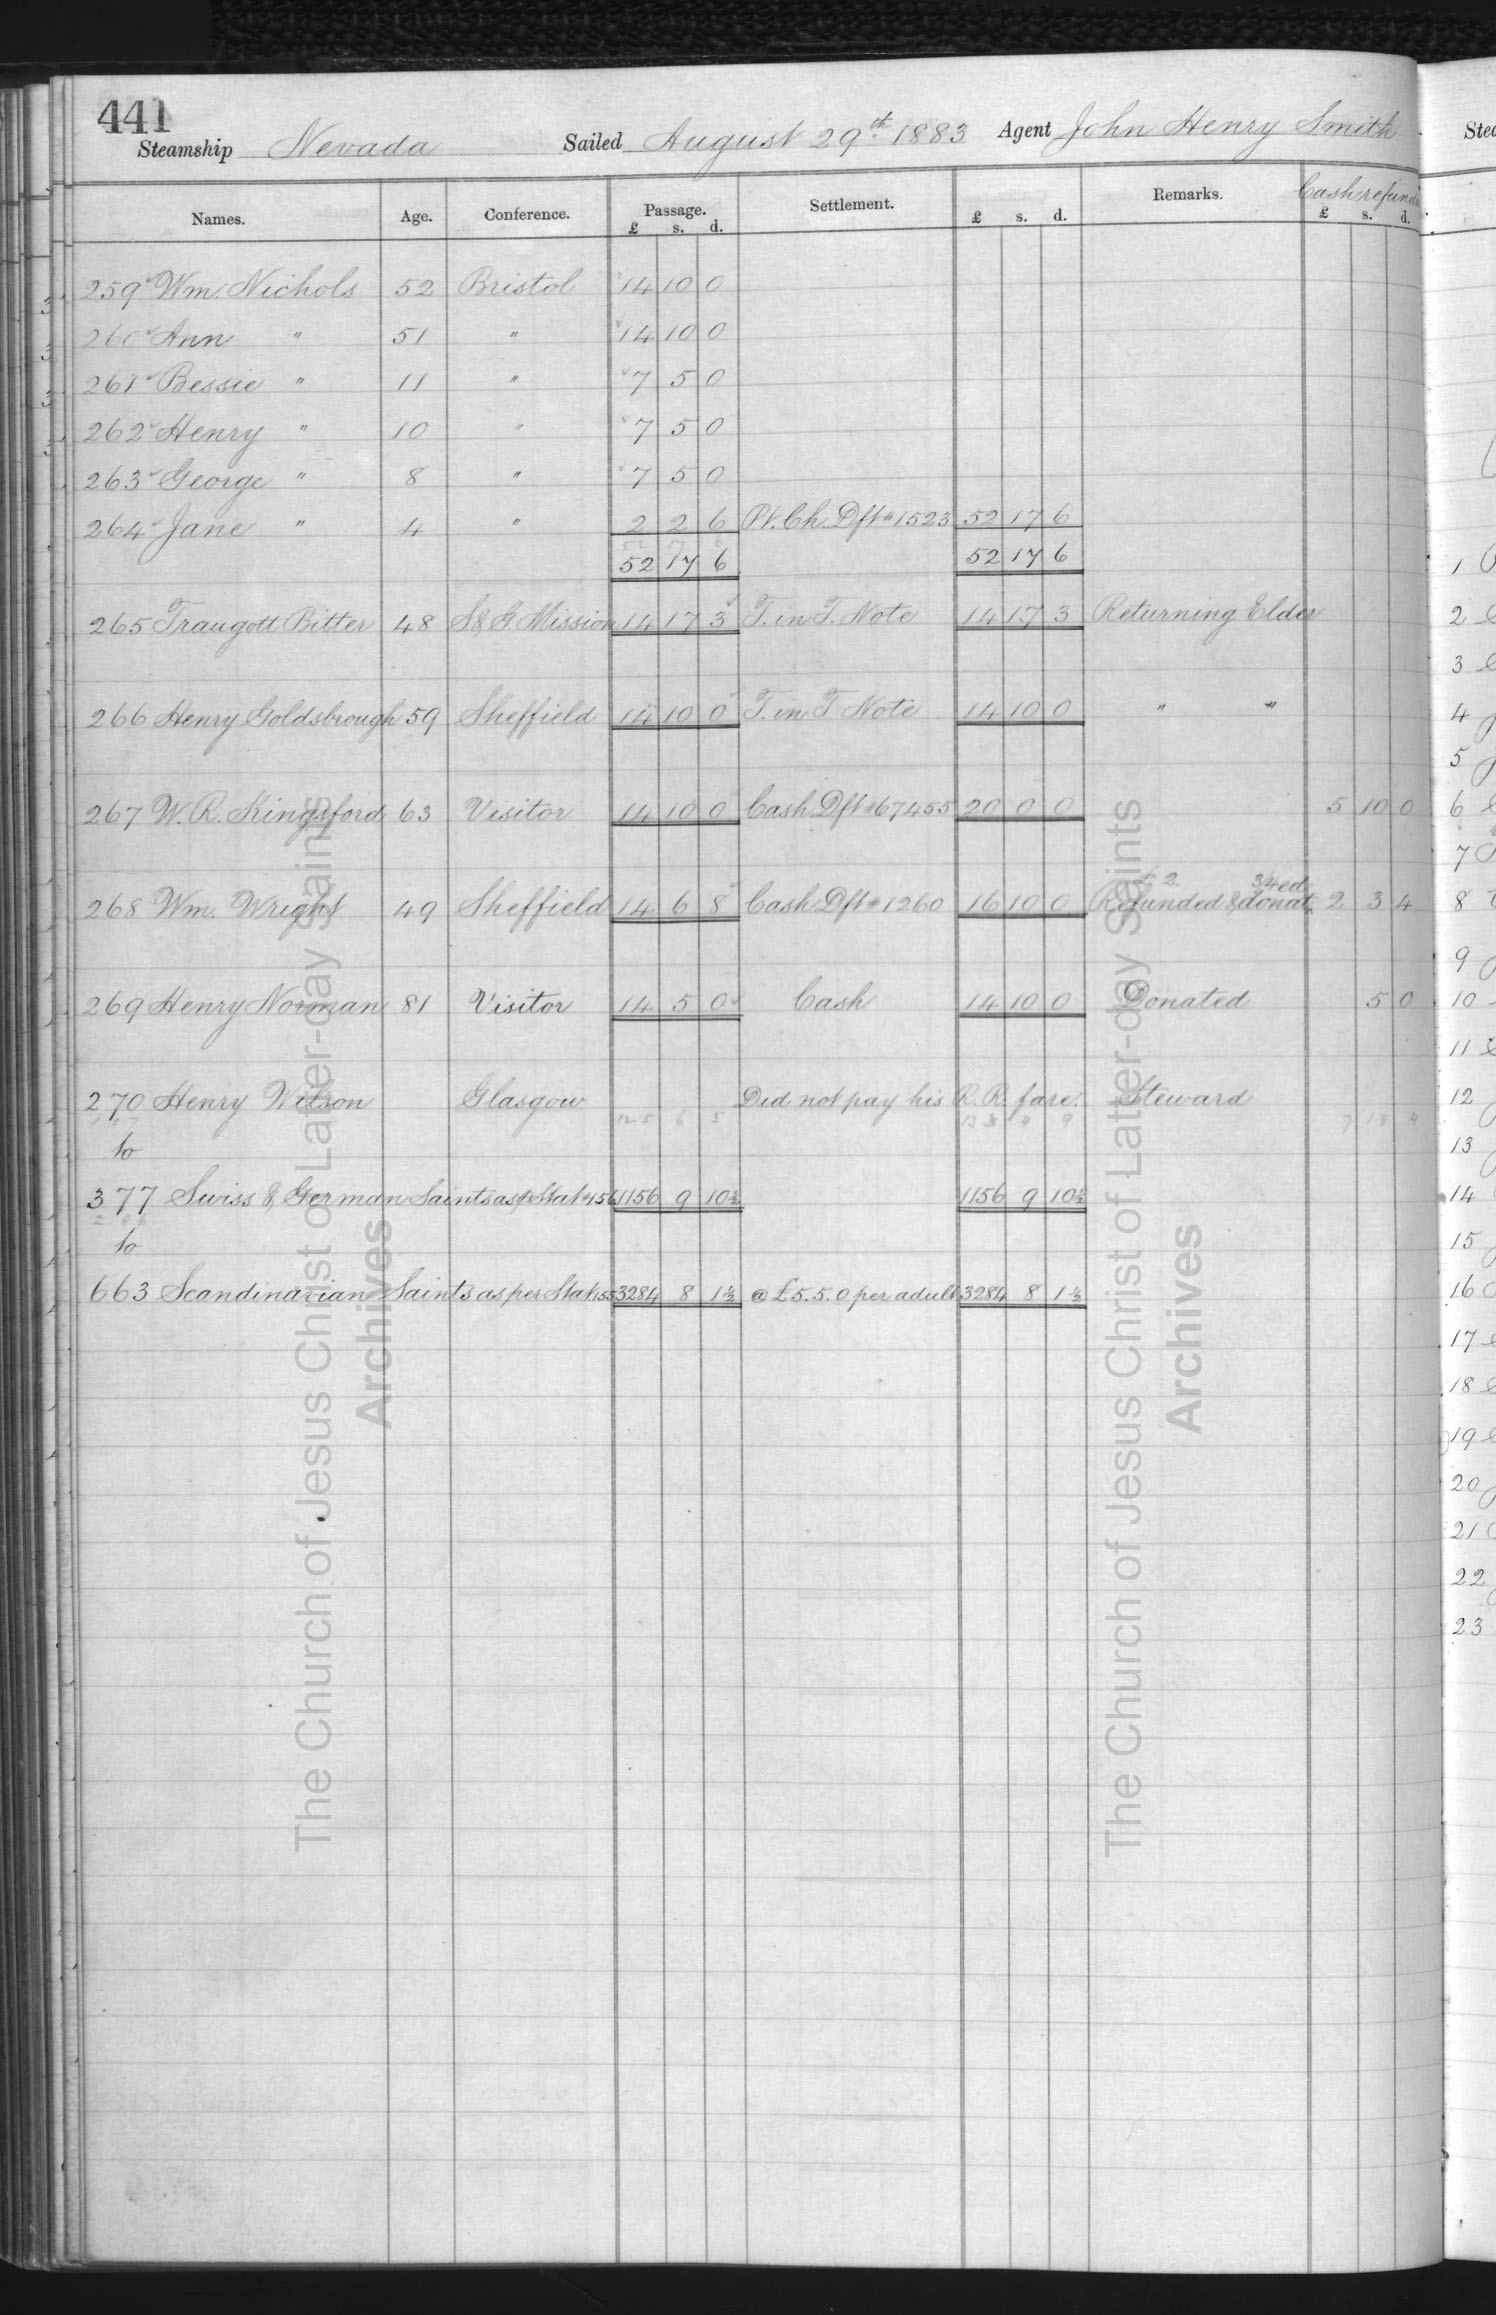 441
Steamship Nevada Sailed August 29th 1883 Agent John Henry Smith
Names. Age. Conference. Passage. £ s. d. Settlement. £ s. d. Remarks. Cash refund £ s. d.
259 Wm. Nichols 52 Bristol 14 10 0
260 Ann " 51 " 14 10 0
261 Bessie " 11 " 7 5 0
262 Henry " 10 " 7 5 0
263 George " 8 " 7 5 0
264 Jane " 4 " 2 2 6 Pt. Ch. Dft # 1523 52 17 6
52 17 6 52 17 6
265 Traugott Bitter 48 S. & G. Mission 14 17 3 T. in T. Note 14 17 3 Returning Elder
266 Henry Goldsbrough 59 Sheffield 14 10 0 T. in T Note 14 10 0 " "
267 W. R. Kingsford 63 Visitor 14 10 0 Cash Dft # 67455 20 0 0 5 10 0
£ 2. 3/4 ed
268 Wm. Wright 49 Sheffield 14 6 8 Cash Dft # 1260 16 10 0 Refunded & donat 2 3 4
269 Henry Norman 81 Visitor 14 5 0 Cash 14 10 0 Donated 5 0
270 Henry Wilson Glasgow Did not pay his R. R. fare. Steward
125 6 5
to
377 Swiss & German Saints as p Stat # 156 1156 9 10½ 1156 9 10½
to
663 Scandinavian Saints as per Stat 155 3284 8 1½ @ £5. 5. 0 per adult 3284 8 1½
The Church of Jesus Christ of Latter-day Saints
Archives
The Church of Jesus Christ of Latter-day Saints
Archives
1
2
3
4
5
6
7
8
9
10
11
12
13
14
15
16
17
18
19
20
21
22
23